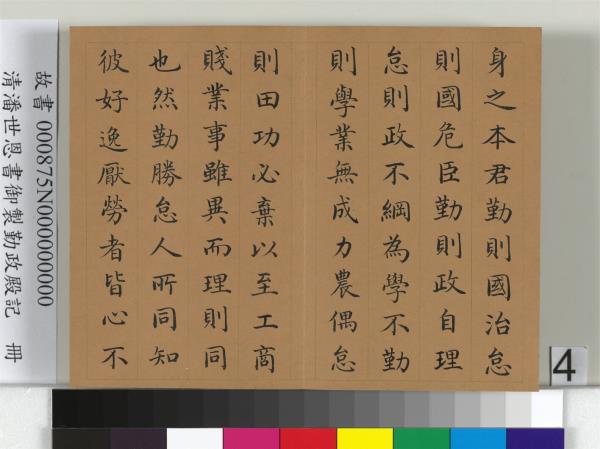 身之本君勤則國治怠
則國危臣勤則政自理
怠則政不綱為學不勤
則學業無成力農偶怠
則田功必棄以至工商
賤業事雖異而理則同
也然勤勝怠人所同知
彼好逸厭勞者皆心不
故書 000875N000000000
清潘世恩書御製勤政殿記 冊
4